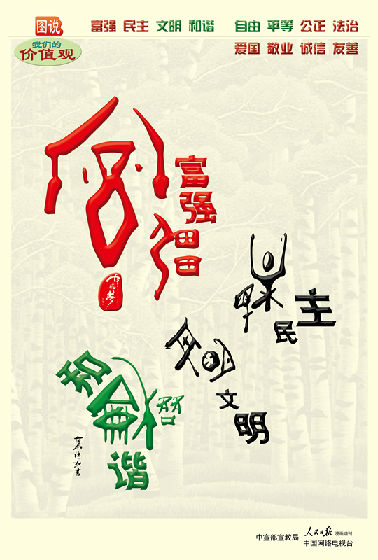 图说
我们的
价值观
富强 民主 文明 和谐 自由 平等 公正 法治
爱国 敬业 诚信 友善
富强
民主
文明
和
谐
中宣部宣教局 人民日报
中国网络电视台